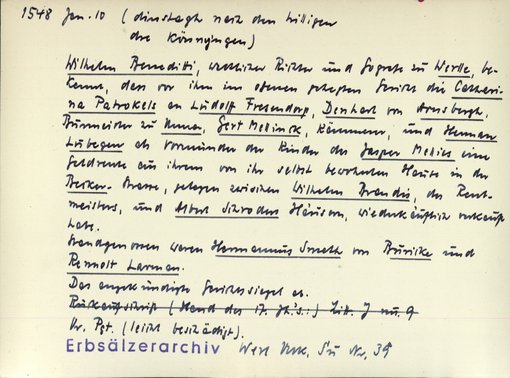 1548 Jan. 10 (dinstagh nach den hilligen
dre Könnyngen)
Wilhelm Beneditti, weltlicher Richter und Gogrefe zu Werlle, be-
kennt, dass vor ihm im offenen gehegten Gericht die Catheri-
na Patrokels an Ludolff Fresendorp, Denhart von Arnsbergh,
Bürmeister zu Unna, Gert Mellinck, Kämmerer, und Herman
Lubegen als Vormünder der Kinder des Jasper Mehies eine
Geldrente aus ihrem von ihr selbst bewohnten Hause in der
Becker-Strasse, gelegen zwischen Wilhelm Brandis, des Rent-
meisters, und Albert Schroders Häusern, wiederkäuflich verkauft
habe.
Standgenossen waren Hermannus Smeth von Büricke und
Rennolt Larman.
Das angekündigte Gerichtssiegel ab.
Rückaufschrift (Hand des 17. Jh's.:) Litt. J nu. 9
Or. Pgt. (leicht beschädigt).
Erbsälzerarchiv Werl Urk. Su Nr. 39